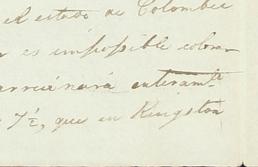 el estado de Colombia
es impossible cobrar
arruinará enteramte
7½, que en Kingston